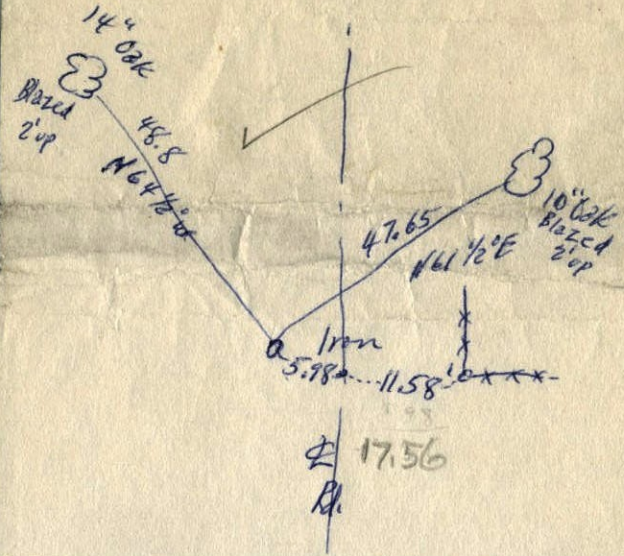 14" Oak
Blazed
2' up
48.8
N 64 1/2° W
47.65
N 61 1/2° E
10" Oak
Blazed
2' up
Iron
5.98
11.58'
5.98
17.56
℄
Rd.